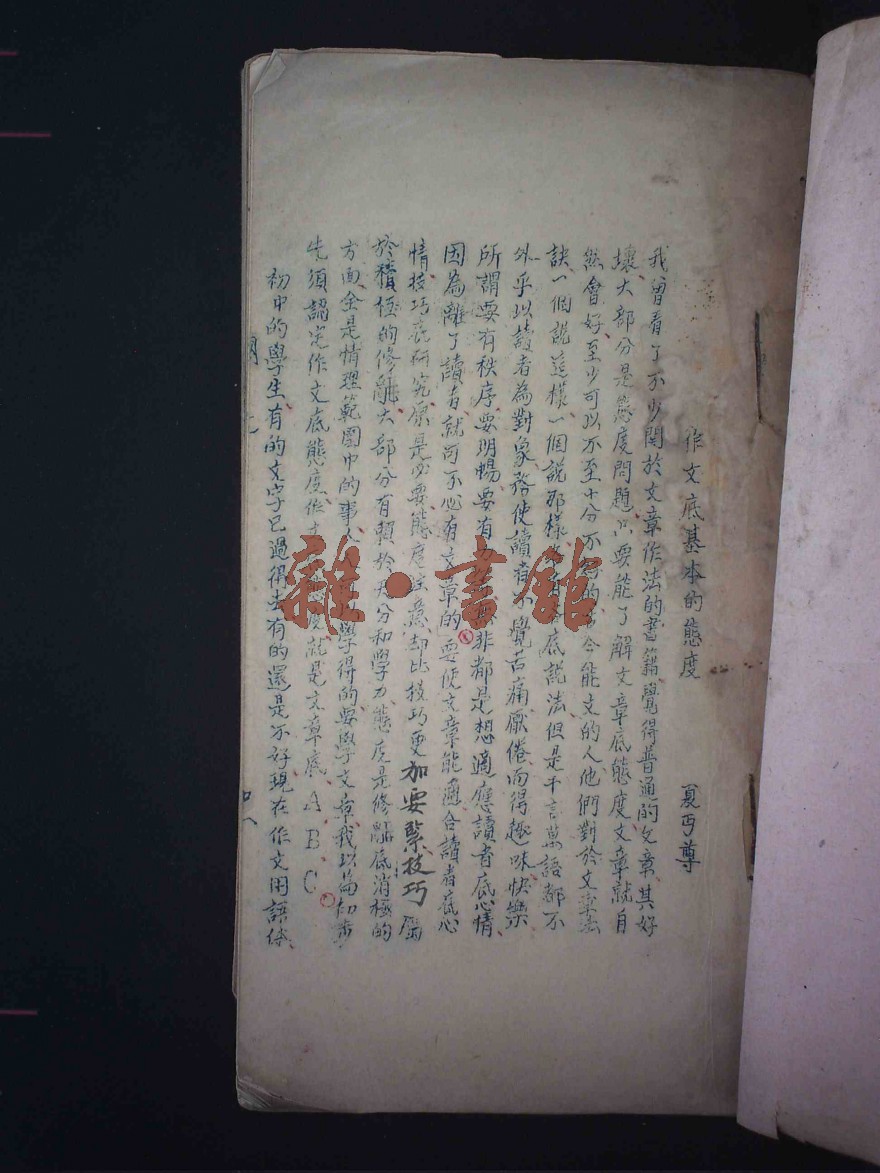 作文底基本的態度
夏丏尊
我曾看了不少關於文章作法的書籍、覺得普通的文章、其好
壞、大部分是態度問題、只要能了解文章底態度、文章就自
然會好、至少可以不至十分不 的 今能文的人、他們對於文章法
訣、一個說這樣、一個說那樣、 底說法、但是千言萬語、都不
外乎以讀者為對象、務使讀者不覺苦痛厭倦而得趣味快樂、
所謂要有秩序、要明暢、要有力 非都是想適應讀者底心情、
因為離了讀者、就可不必有文章的、要使文章能適合讀者底心
情、技巧底研究原是必要、態度 注意、却比技巧更加要緊、技巧屬
於積極的修辭、大部分有賴於天分和學力、態度是修辭底消極的
方面、全是情理範圍中的事、人 學得的、要學文章、我以為初步
先須認定作文底態度、作文 度就是文章底ABC。
初中的學生、有的文字已過得去、有的還是不好、現在作文用語体、
國
一
四八
雜·書館